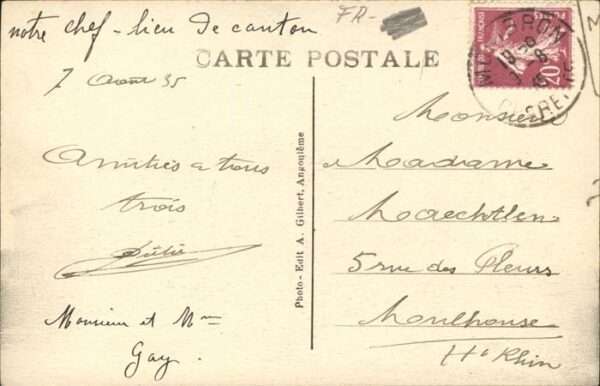 notre chef-lieu de canton
FR-
CARTE POSTALE
7 Août 35
Amitiés a tous
trois
Monsieur et Mme
Gay.
Photo - Edit A. Gilbert, Angoulême
20c
Monsieur
Madame
Maechtlen
5 rue des Fleurs
Moulhouse
Ht Rhin